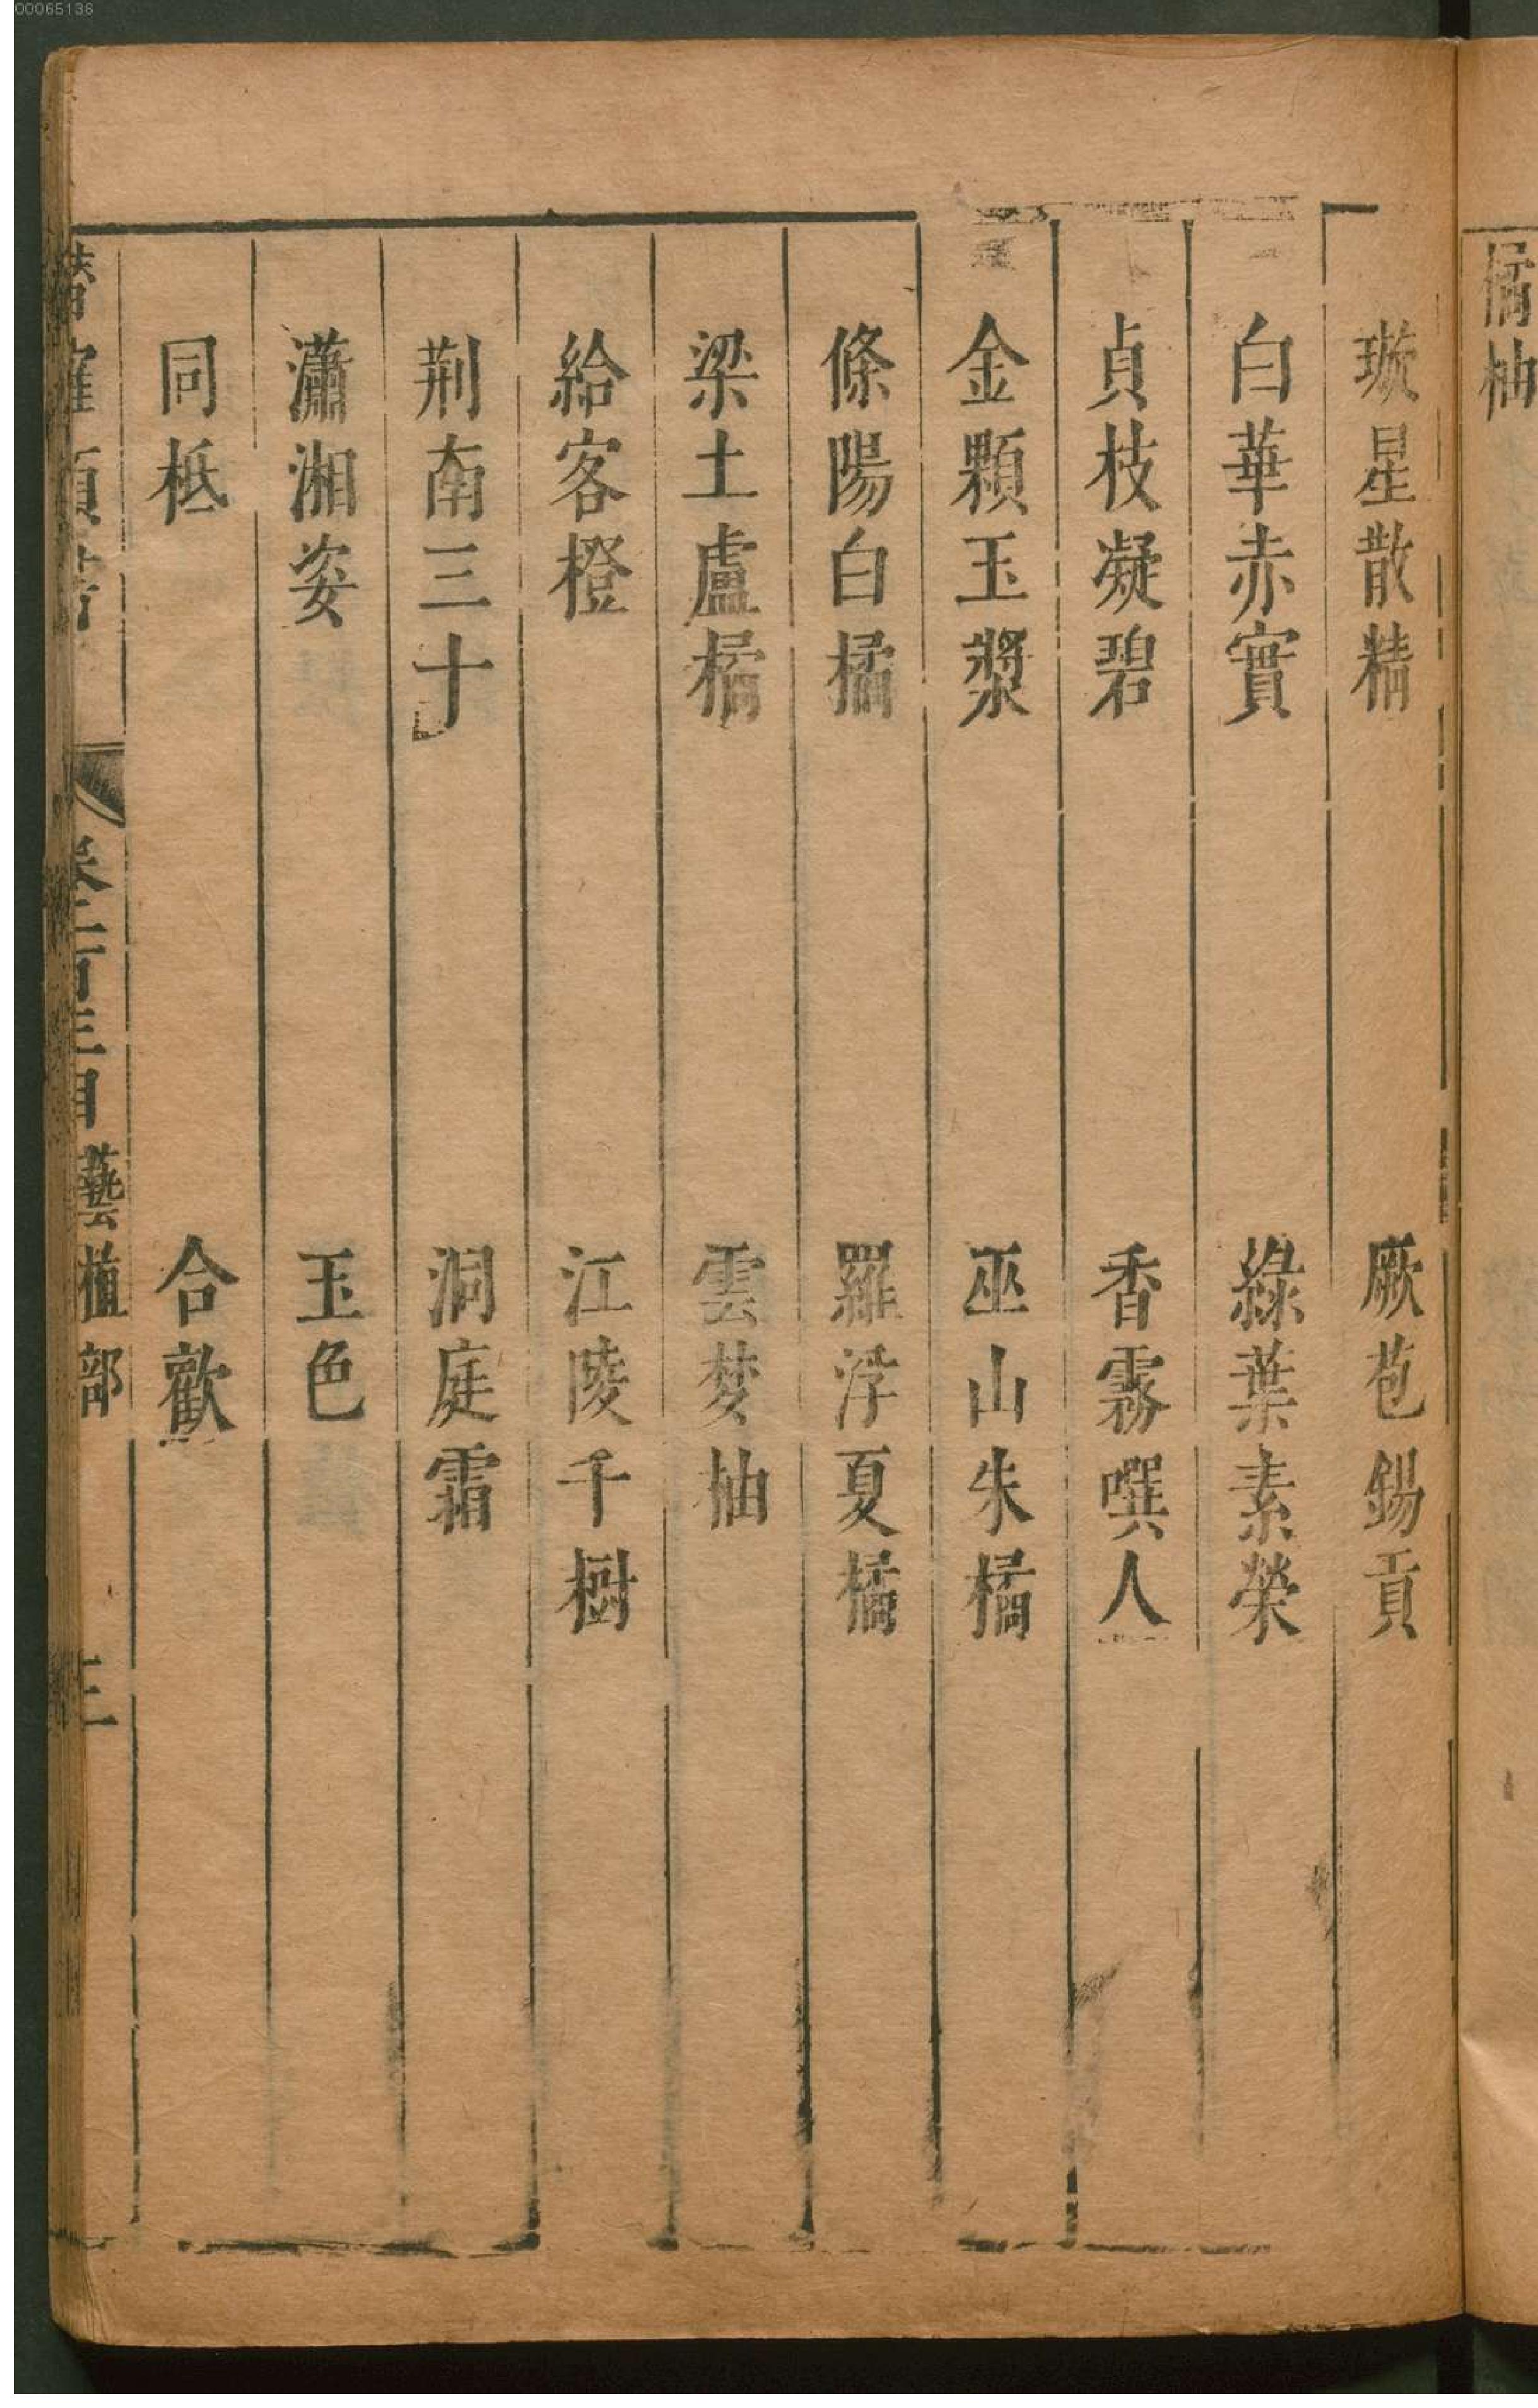 00065136
橘柚
璇星散精 厥苞錫貢
白華赤實 綠葉素榮
貞枝凝碧 香霧噀人
金顆玉漿 巫山朱橘
條陽白橘 羅浮夏橘
梁土盧橘 雲梦柚
給客橙 江陵千樹
荆南三十 洞庭霜
瀟湘姿 玉色
同柢 合歡
藝植部 三